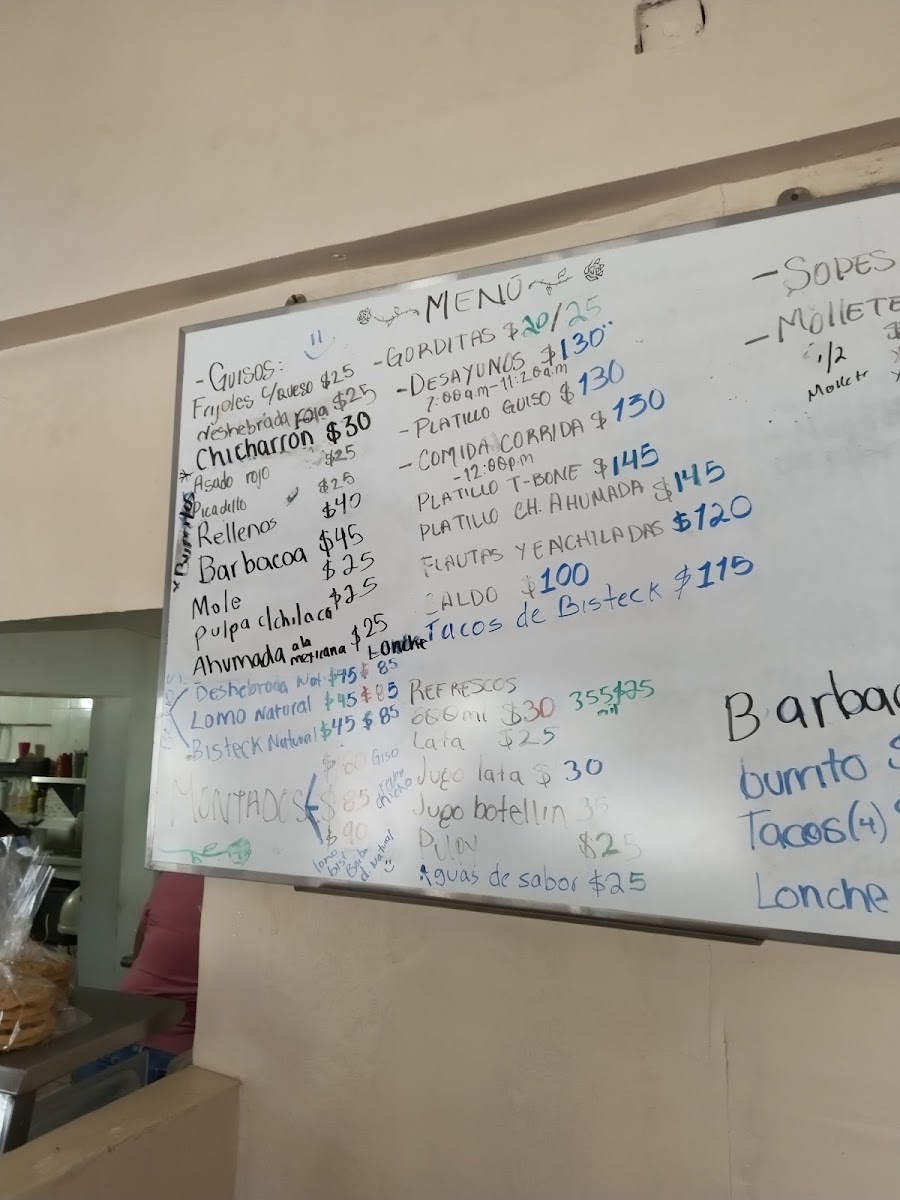 MENÚ
- GUISOS:
Frijoles c/queso $25
Deshebrada roja $25
Chicharrón $30
Asado rojo $25
Picadillo $25
Rellenos $40
Barbacoa $45
Mole $25
Pulpa c/chilaca $25
Ahumada a la mexicana $25
* Burritos *
Lonche
Deshebrada Nat. $45 $85
Lomo Natural $45 $85
Bisteck Natural $45 $85
MONTADOS
$80 Giso
$85 
$90
lomo
bist
Barba
d. Natural
- GORDITAS $20/25
- DESAYUNOS $130
7:00am-11:20a.m
- PLATILLO GUISO $130
- COMIDA CORRIDA $130
-12:00p.m
PLATILLO T-BONE $145
PLATILLO CH. AHUMADA $145
FLAUTAS Y ENCHILADAS $120
CALDO $100
Tacos de Bisteck $115
REFRESCOS
600ml $30 355 mil $25
Lata $25
Jugo lata $30
Jugo botellin 35
$25
Aguas de sabor $25
- SOPES
- MOLLETE
1/2
Mollete
Barbac
burrito $
Tacos(4) $
Lonche